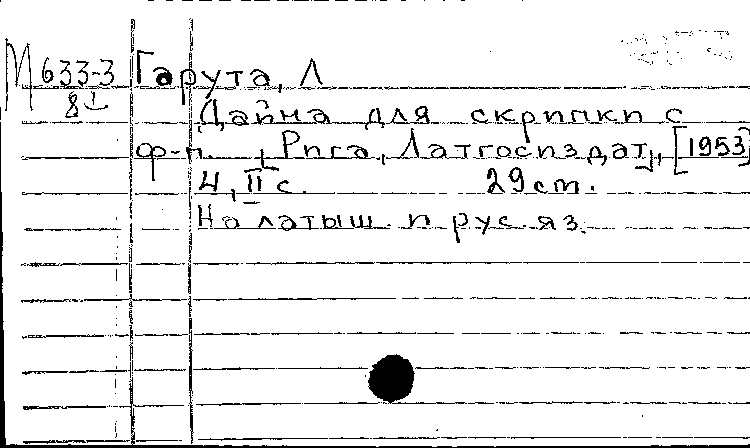 М 633-3 Гарута, Л
8
Дайна для скрипки с
ф-п. , Рига, Латгосиздат, [1953]
4, II с. 29 см.
На латыш. и рус яз.